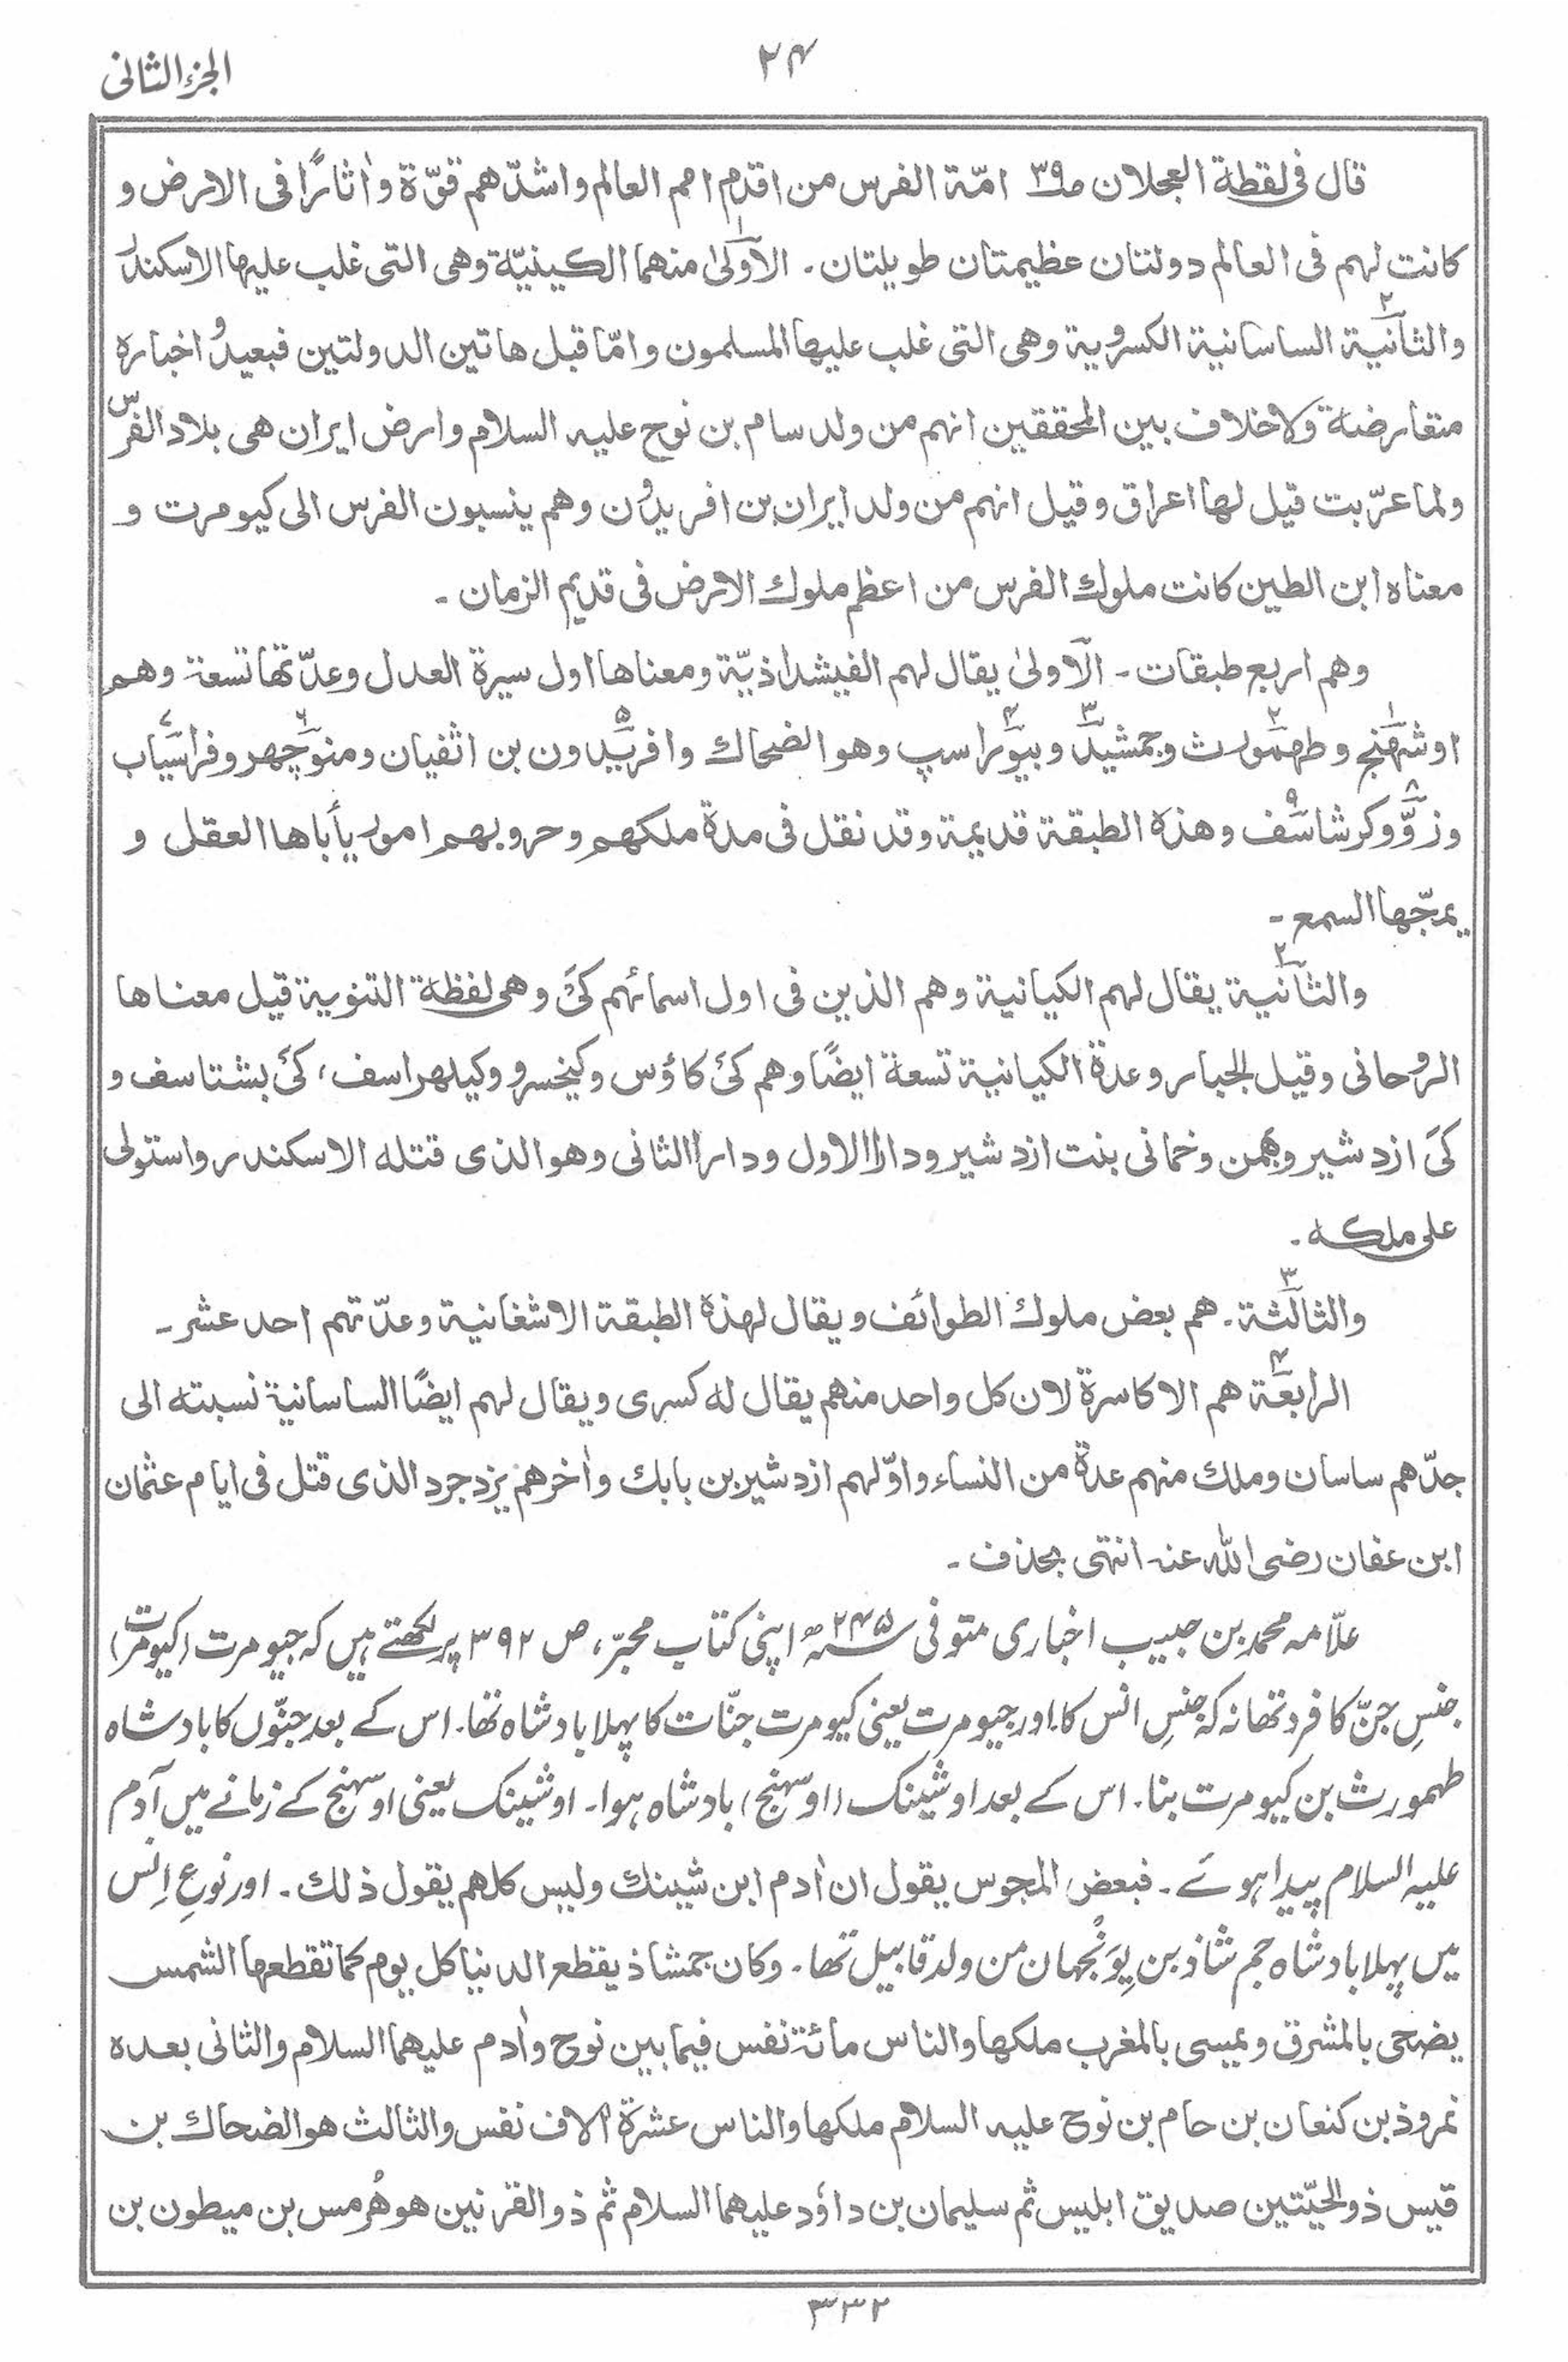 ۲۴
الجزء الثانی
قال فی لقطة العجلان ص۳۹ امّة الفرس من اقدم امم العالم واشدّهم قوّة واٰثارًا فی الارض و
کانت لہم فی العالم دولتان عظیمتان طویلتان ۔ الاُولیٰ منهما الکینیّة وهی التی غلب علیہا الاسکندر
والثانیة الساسانیة الکسرویة وهی التی غلب علیها المسلمون وامّا قبل هاتین الدولتین فبعیدٌ و اخباره
متعارضة ولاخلاف بین المحققین انہم من ولد سام بن نوح علیہ السلام وارض ایران هی بلاد الفرس
ولما عرّبت قیل لها اعراق وقیل انہم من ولد ایران بن افریدون وهم ینسبون الفرس الی کیومرت و
معناه ابن الطین کانت ملوك الفرس من اعظم ملوك الارض فی قدیم الزمان ۔
وهم اربع طبقات ۔ الاولیٰ یقال لہم الفیشداذیّة ومعناها اول سیرة العدل وعدّتها تسعة وهم
۱ اوشهنج و ۲ طهمورث و ۳ جمشید و ۴ بیوراسپ وهو الضحاك و ۵ افریدون بن اثفیان و ۶ منوچهر و ۷ فراسیاب
و ۸ زوّ و ۹ کرشاسف وهذه الطبقة قدیمة وقد نقل فی مدة ملکهم وحروبهم امور یأباها العقل و
یمجّها السمع ۔
والثانیة ۲ یقال لہم الکیانیة وهم الذین فی اول اسمائہم کَیْ وهی لفظة التنویة قیل معناها
الروحانی وقیل الجبار وعدة الکیانیة تسعة ایضًا وهم کَیْ کاؤس وکیخسرو وکیلهراسف، کَیْ بشتاسف و
کَیْ ازدشیر وبهمن وخمانی بنت ازدشیر ودارا الاول ودارا الثانی وهو الذی قتله الاسکندر واستولی
علی ملکه ۔
والثالثة ۳ ۔ هم بعض ملوك الطوائف ویقال لهذه الطبقة الاشغانیة وعدّتہم احد عشر ۔
الرابعة ۴ هم الاکاسرة لان کل واحد منهم یقال له کسری ویقال لہم ایضًا الساسانیة نسبته الی
جدّهم ساسان وملك منہم عدة من النساء واوّلہم ازدشیر بن بابك واٰخرهم یزدجرد الذی قتل فی ایام عثمان
ابن عفان رضی اللّٰہ عنہ انتهی بحذف ۔
علّامہ محمد بن حبیب اخباری متوفی ۲۴۵ھ اپنی کتاب محبّر، ص ۳۹۲ پر لکھتے ہیں کہ جیومرت (کیومرت)
جنسِ جنّ کا فرد تھا نہ کہ جنسِ انس کا۔ اور جیومرت یعنی کیومرت جنّات کا پہلا بادشاہ تھا۔ اس کے بعد جنّوں کا بادشاہ
طہمورث بن کیومرت بنا۔ اس کے بعد اوشینک (اوسہنج) بادشاہ ہوا۔ اوشینک یعنی اوسہنج کے زمانے میں آدم
علیہ السلام پیدا ہوئے ۔ فبعض المجوس یقول ان اٰدم ابن شینك ولیس کلهم یقول ذلك ۔ اور نوعِ اِنس
میں پہلا بادشاہ جم شاذ بن یوَنْجہان من ولد قابیل تھا۔ وکان جمشاذ یقطع الدنیا کل یوم کما تقطعها الشمس
یضحی بالمشرق ویمسی بالمغرب ملکها والناس مائة نفس فیما بین نوح واٰدم علیهما السلام والثانی بعده
نمروذ بن کنعان بن حام بن نوح علیہ السلام ملکها والناس عشرة اٰلاف نفس والثالث هو الضحاك بن
قیس ذو الحیّتین صدیق ابلیس ثم سلیمان بن داؤد علیهما السلام ثم ذو القرنین هو هُرمس بن میطون بن
۳۳۲